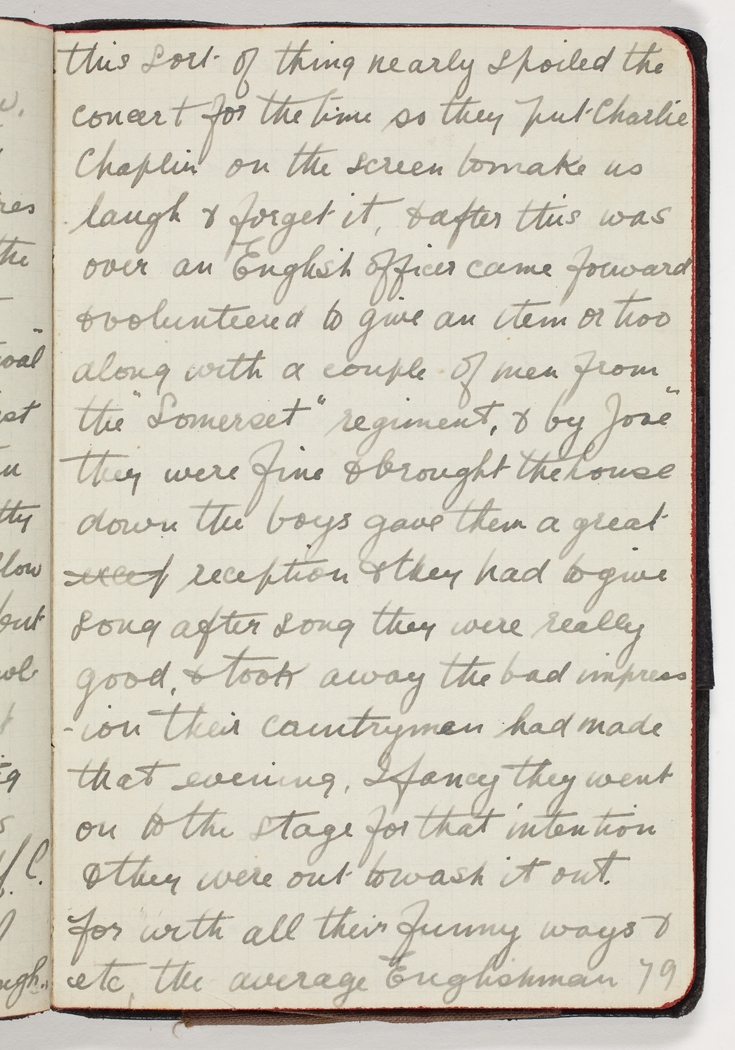 this sort of thing nearly spoiled the
concert for the time so they put Charlie
Chaplin on the screen to make us
laugh & forget it, & after this was
over an English officer came forward
& volunteered to give an item or two
along with a couple of men from
the "Somerset" regiment, & by Jove"
they were fine & brought the house
down the boys gave them a great
reception & they had to give
song after song they were really
good, & took away the bad impress
-ion their countrymen had made
that evening, I fancy they went
on to the stage for that intention
& they were out to wash it out.
for with all their funny ways &
etc, the average Englishman 79